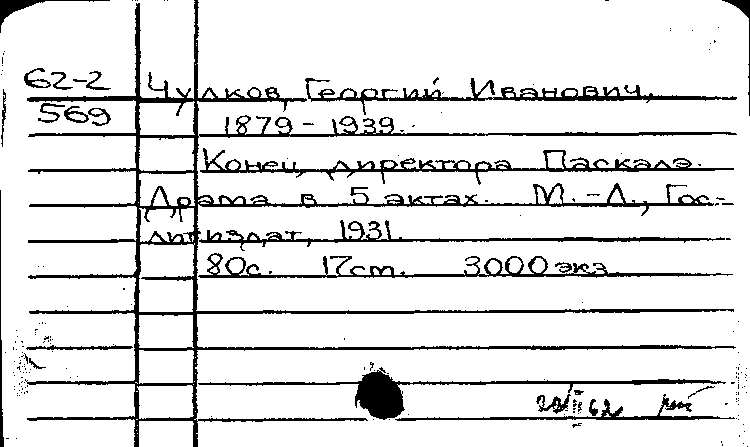 62-2
569
Чулков, Георгий Иванович,
1879 - 1939.
Конец директора Паскалэ.
Драма в 5 актах. М. - Л., Гос-
литиздат, 1931.
80с. 17см. 3000 экз.
62